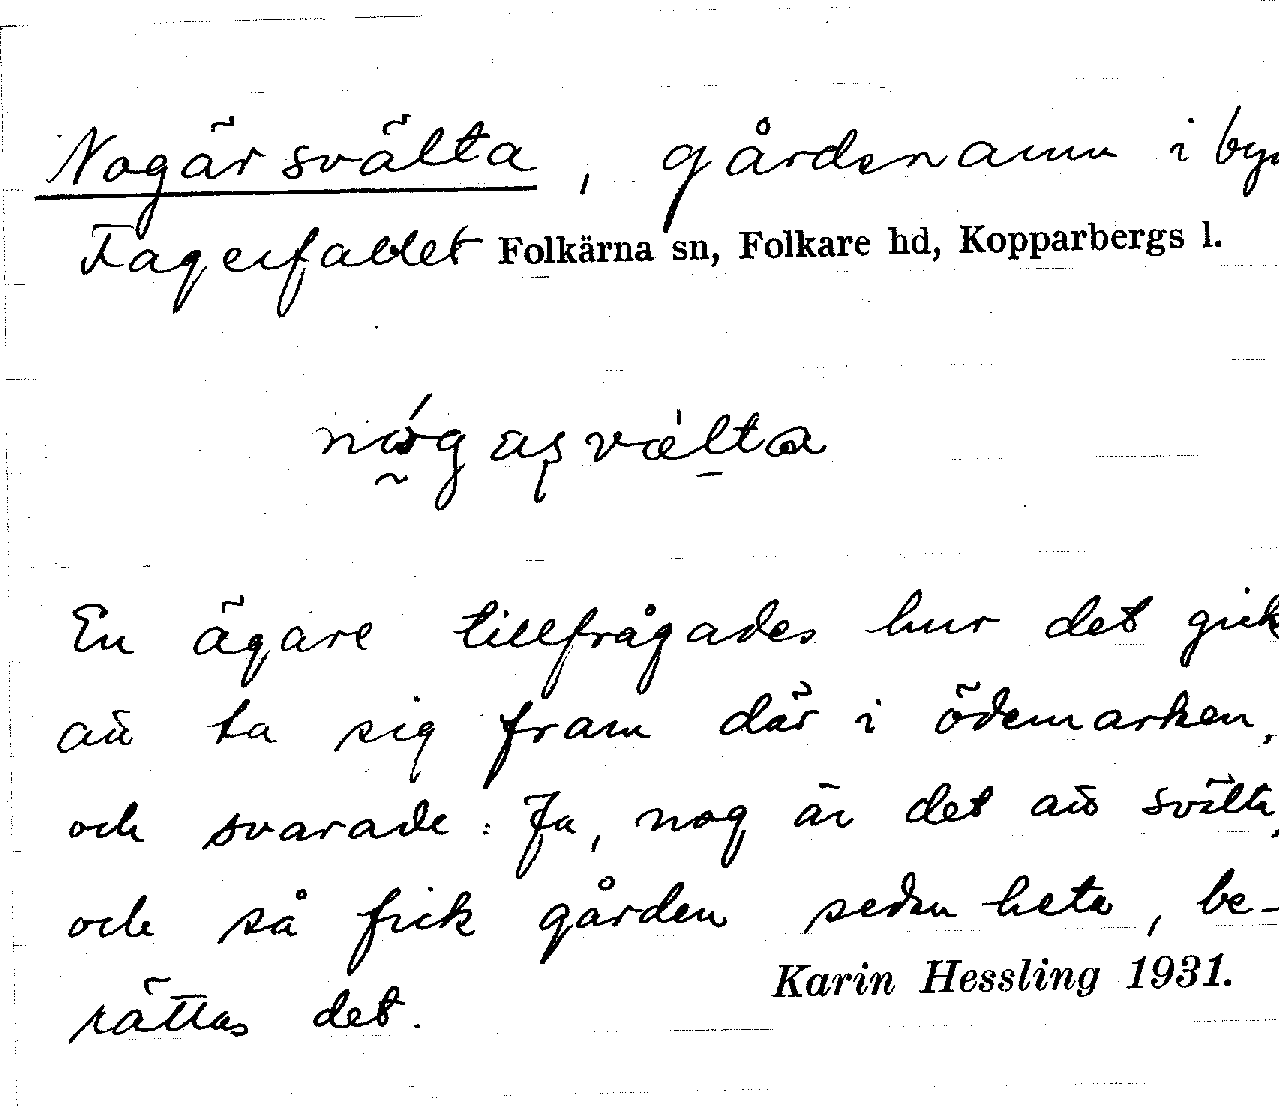 Nogärsvälta, gårdsnamn i byn
Fagerfallet Folkärna sn, Folkare hd, Kopparbergs l.
En ägare tillfrågades hur det gick
att ta sig fram där i ödemarken,
och svarade: Ja, nog är det att svälta,
och så fick gården sedan heta, be-
rättas det.
Karin Hessling 1931.